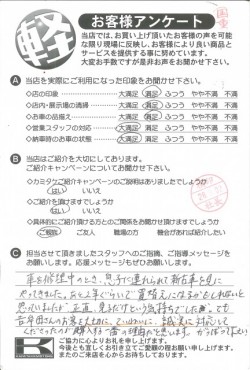 軽
お客様アンケート
当店では、お買い上げ頂いたお客様の声を可能
な限り現場に反映し、お客様により良い商品と
サービスを提供する事に努めています。
大変お手数ですが是非お声をお聞かせ下さい。
A 当店を実際にご利用になった印象をお聞かせ下さい。
◇店の印象 大満足 満足 ふつう やや不満 不満
◇店内・展示場の清掃 大満足 満足 ふつう やや不満 不満
◇お車の品揃え 大満足 満足 ふつう やや不満 不満
◇営業スタッフの対応 大満足 満足 ふつう やや不満 不満
◇納車時のお車の状態 大満足 満足 ふつう やや不満 不満
B 当店はご紹介を大切にしております。
ご紹介キャンペーンについてお聞かせ下さい。
◇カミタケご紹介キャンペーンのご説明はありましたでしょうか
はい いいえ
◇ご紹介を頂けますでしょうか
はい いいえ
◇具体的にご紹介頂ける方とのご関係をお聞かせ頂けますでしょうか
ご親戚 ご友人 職場の方 機会があれば紹介したい
C 担当させて頂きましたスタッフへのご指摘、ご指導メッセージを
お願いします。応援メッセージもぜひお願いします。
車を修理中のとき、息子に連れられ新古車を見に
やってきました。あと2年ぐらいで買替えになるかもしれないと
思っていましたが、正直、見るだけという気持ちでしたが、でも
吉舎田さんのお客を大切に、ていねいに、誠実に対応して
くださったのが購入する一番の理由だと思います。がんばって下さい!
ご協力に心よりお礼を申し上げます。
今後とも宜しくお引き立てご愛顧の程お願い申し上げます。
またのご来店を心からお待ちしております。